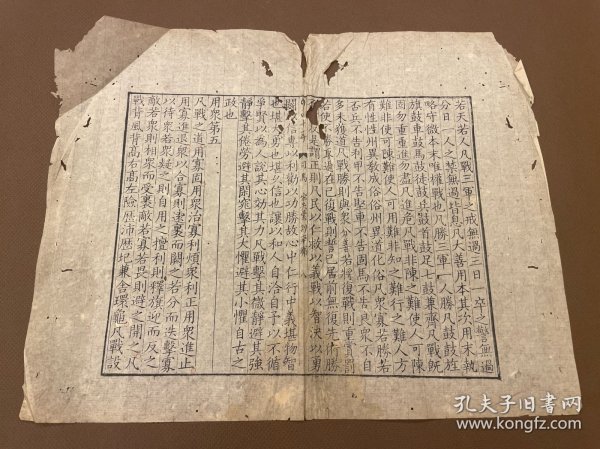 若天若人凡戰三軍之戒無過三日一卒之警無過
分日一人之禁無過皆息凡大善用本其次用末執
略守微本末唯權戰也凡勝三軍一人勝凡鼓鼓旌
旗鼓車鼓馬鼓徒鼓兵鼓首鼓足七鼓兼齊凡戰既
固勿重重進勿盡凡進危凡戰非陳之難使人可陳
難非使可陳難使人可用難非知之難行之難人方
有性性州異教成俗俗州異道化俗凡眾寡若勝若
否兵不告利甲不告堅車不告固馬不告良眾不自
多未獲道凡戰勝則與眾分善若將復戰則重賞罰
若使不勝取過在己復戰則誓己居前無復先術勝
否勿反是謂正則凡民以仁救以義戰以智決以勇
鬬以信專以利勸以功勝故心中仁行中義堪物智
也堪大勇也堪久信也讓以和人自洽自予以不循
爭賢以為人說其心効其力凡戰擊其微靜避其強
靜擊其倦勞避其閑窕擊其大懼避其小懼自古之
政也
用眾第五
凡戰之道用寡固用眾治寡利煩眾利正用眾進止
用寡進退眾以合寡則遠裹而闕之若分而迭擊寡
以待眾若眾疑之則自用之擅利則釋旗迎而反之
敵若眾則相眾而受裹敵若寡若畏則避之開之凡
戰背風背高右高左險歷沛歷圮兼舍環龜凡戰設
孔夫子旧书网
www.kongfz.com